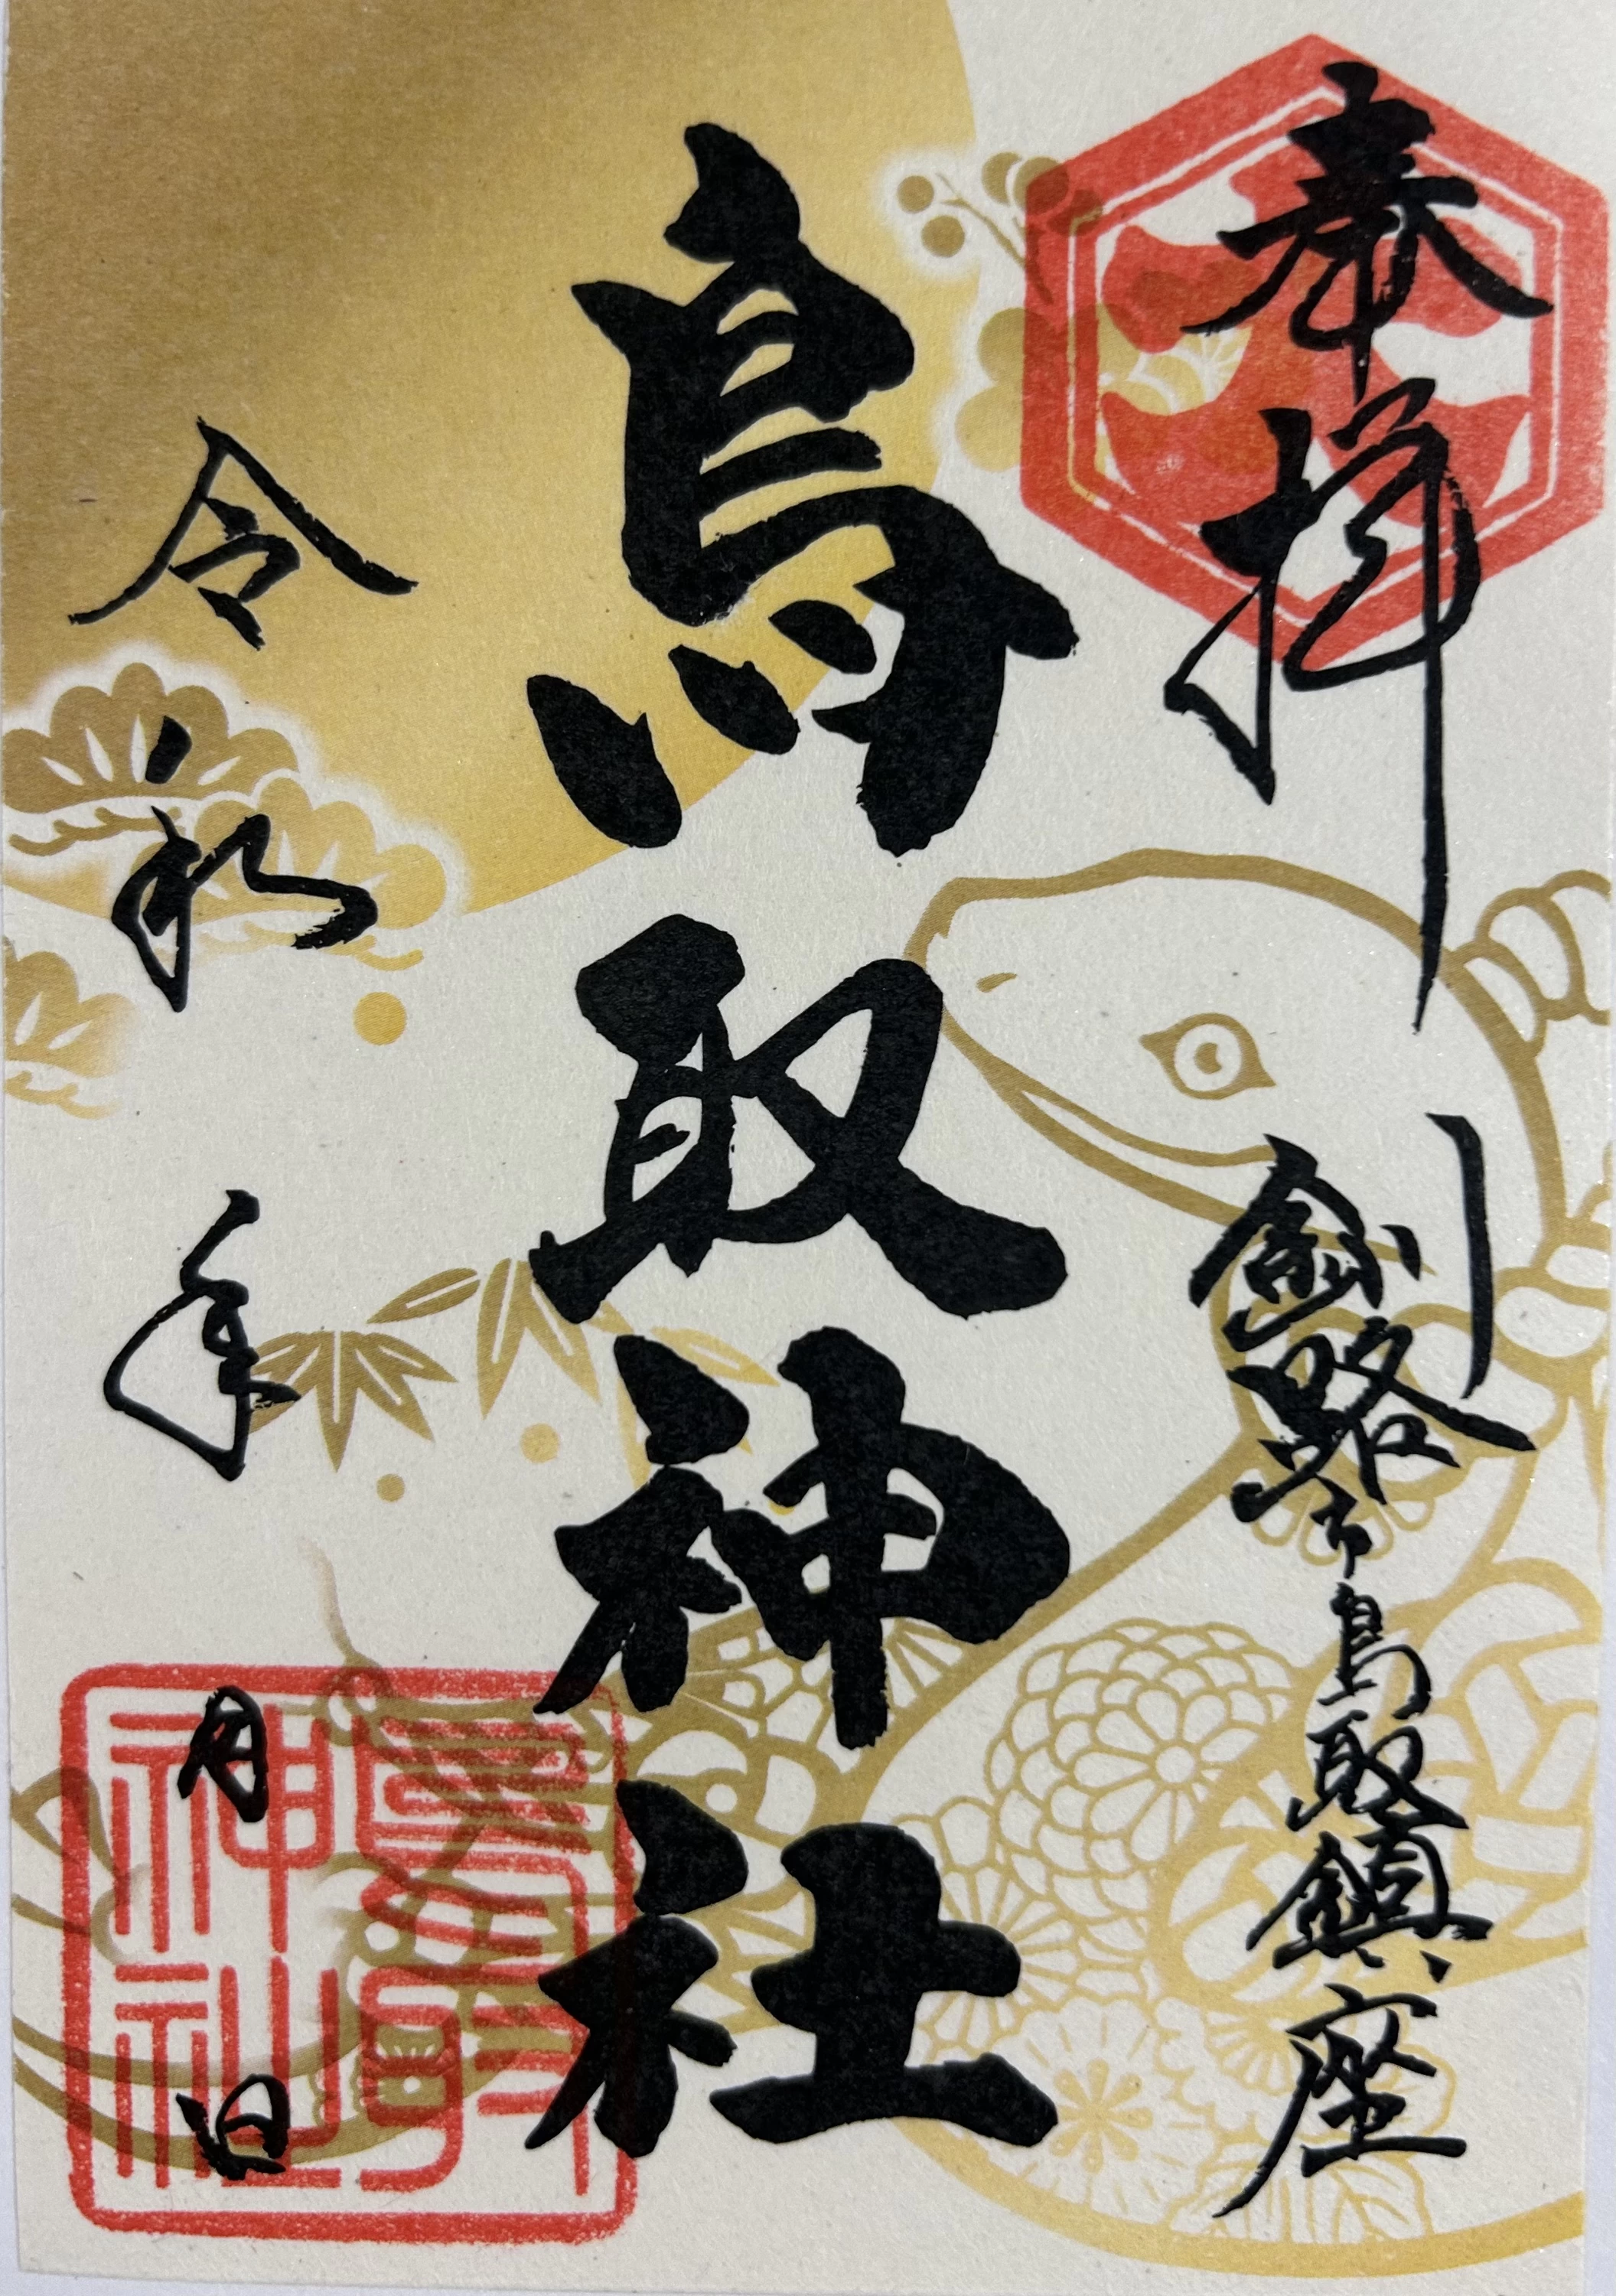 奉拝
釧路市鳥取鎮座
鳥取神社
令和 年 月 日
鳥取神社